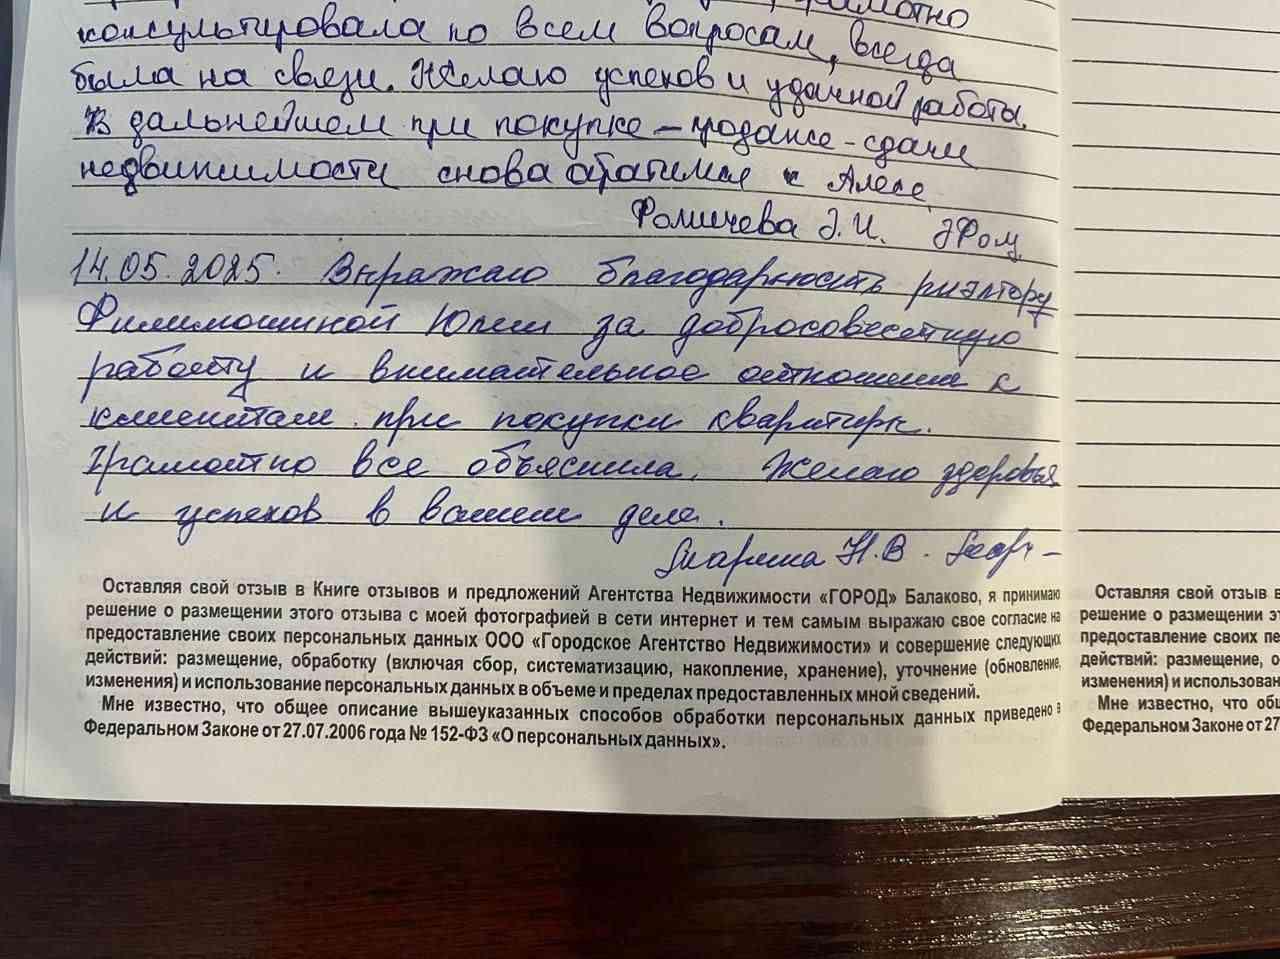 грамотно
консультировала по всем вопросам, всегда
была на связи. Желаю успехов и удачной работы.
В дальнейшем при покупке – продаже - сдачи
недвижимости снова обратимся к Алесе
Фомичева З.И.
14.05.2025. Выражаю благодарность риэлтору
Филимошиной Юлии за добросовестную
работу и внимательное отношение к
клиентам при покупки квартиры.
Грамотно все объяснила. Желаю здоровья
и успехов в вашем деле.
Н.В.
Оставляя свой отзыв в Книге отзывов и предложений Агентства Недвижимости «ГОРОД» Балаково, я принимаю
решение о размещении этого отзыва с моей фотографией в сети интернет и тем самым выражаю свое согласие на
предоставление своих персональных данных ООО «Городское Агентство Недвижимости» и совершение следующих
действий: размещение, обработку (включая сбор, систематизацию, накопление, хранение), уточнение (обновление,
изменения) и использование персональных данных в объеме и пределах предоставленных мной сведений.
Мне известно, что общее описание вышеуказанных способов обработки персональных данных приведено в
Федеральном Законе от 27.07.2006 года № 152-ФЗ «О персональных данных».
Оставляя свой отзыв в
решение о размещении э
предоставление своих пе
действий: размещение, о
изменения) и использован
Мне известно, что общ
Федеральном Законе от 27